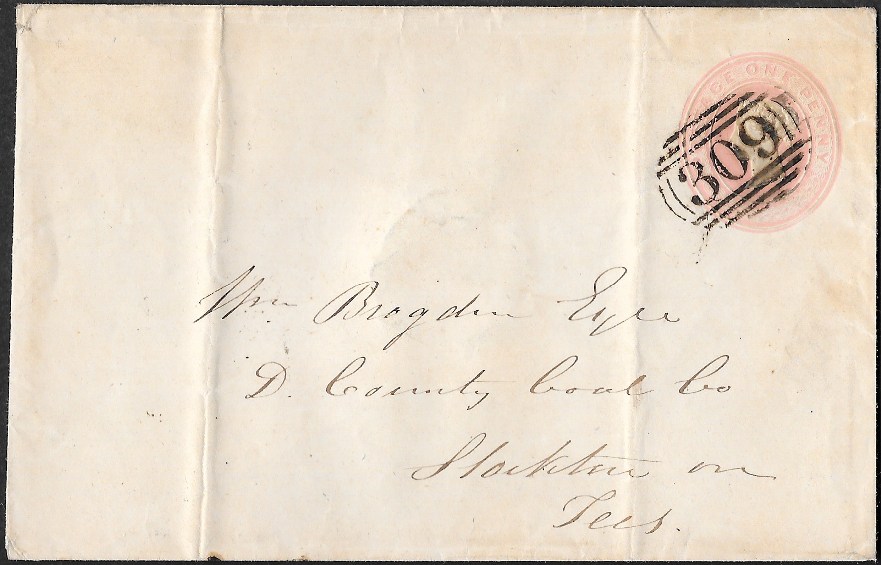 POSTAGE ONE PENNY
309
Wm Brogden Esqre
D. County Coal Co
Stockton on
Tees.